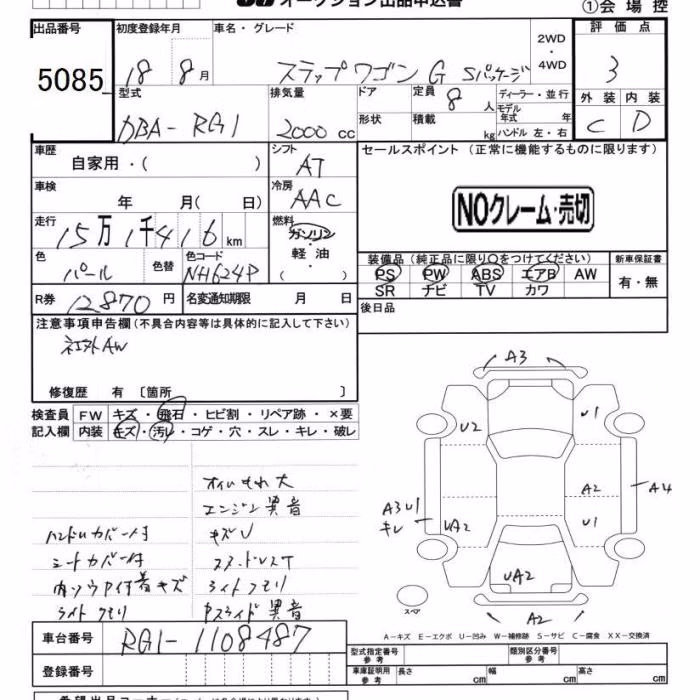 オークション出品申込書
①会場控
出品番号 初度登録年月 車名・グレード 2WD・4WD 評価点
5085 18 8月 ステップワゴン G Sパッケージ 3
型式 排気量 ドア 定員 8人 ディーラー・並行 外装 内装
DBA-RG1 2000cc 形状 積載 kg モデル年式 年 ハンドル 左・右 C D
車歴 自家用・( ) シフト AT セールスポイント(正常に機能するものに限ります)
車検 年 月( 日) 冷房 AAC
NOクレーム・売切
走行 15万1千416km 燃料 ガソリン・軽油・( )
色 パール 色替 色コード NH624P
装備品(純正品に限り○をつけてください) 新車保証書
PS PW ABS エアB AW 有・無
SR ナビ TV カワ
R券 12870円 名変通知期限 月 日 後日品
注意事項申告欄(不具合内容等は具体的に記入して下さい)
社外AW
修復歴 有 〔箇所 〕
検査員 FW キズ・飛石・ヒビ割・リペア跡・×要
記入欄 内装 キズ・汚レ・コゲ・穴・スレ・キレ・破レ
オイルもれ大
エンジン異音
ハンドルカバー付 キズU
シートカバー付
ライトクモリ
ライトクモリ Pスライド異音
A3
U2 U1
A2 A4
A3U1 キレ UA2 U1
UA2
スペア A2
A−キズ E−エクボ U−凹み W−補修跡 S−サビ C−腐食 XX−交換済
車台番号 RG1-1108487
型式指定番号 参考 類別区分番号 参考
登録番号 車庫証明用 参考 長さ cm 幅 cm 高さ cm